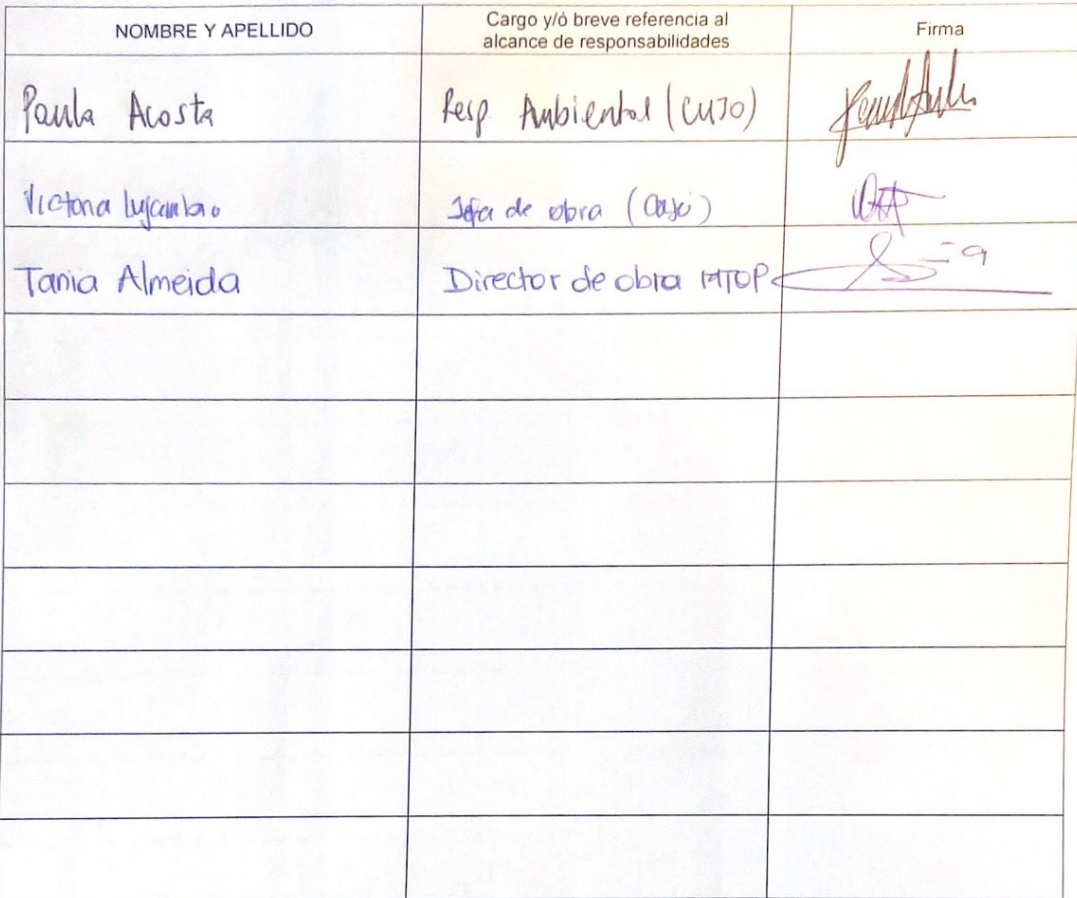 NOMBRE Y APELLIDO
Cargo y/ó breve referencia al
alcance de responsabilidades
Firma
Paula Acosta
Resp Ambiental (CUJO)
Victoria Lujambio
Jefa de obra
Tania Almeida
Director de obra MTOP